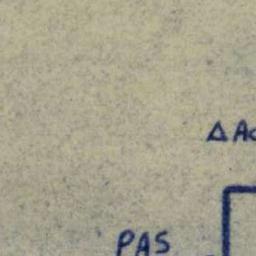 Δ Ac
PAS